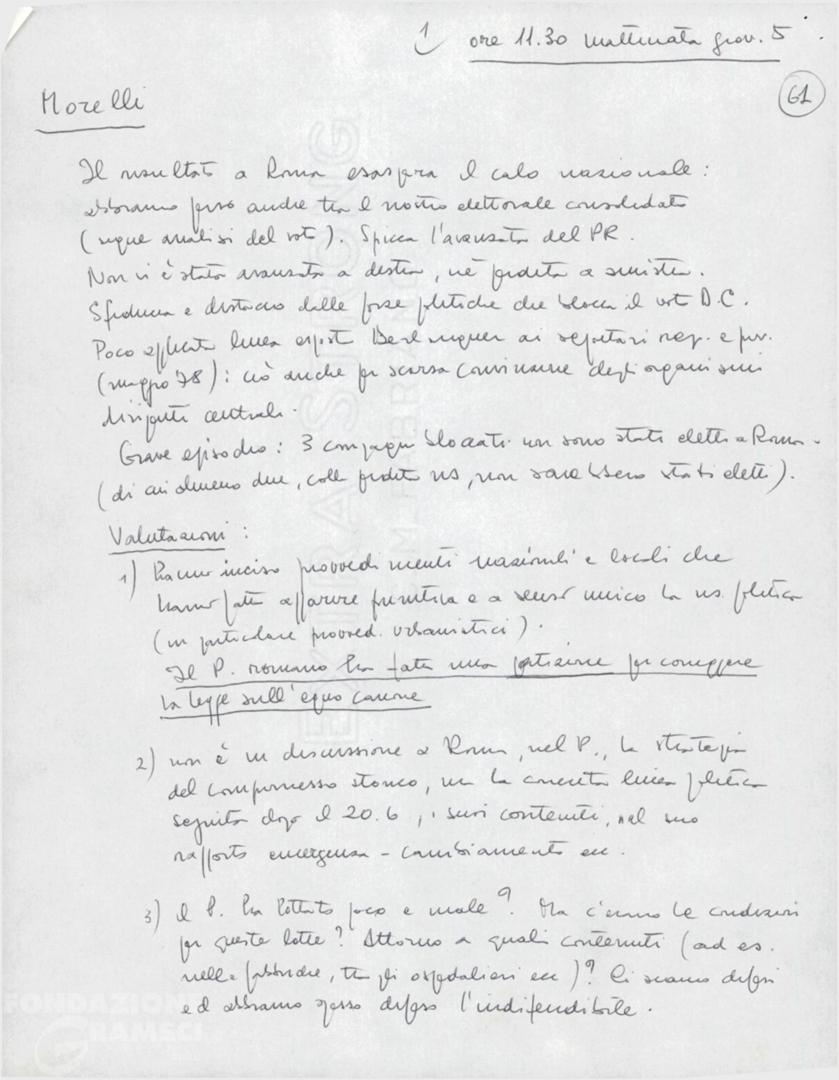 1 ore 11.30 mattinata giov. 5
61
Morelli
Il risultato a Roma esaspera il calo nazionale:
abbiamo perso anche tra il nostro elettorale consolidato
(segue analisi del voto). Spicca l'avanzata del PR.
Non vi è stata avanzata a destra, nè perdita a sinistra.
Sfiducia e distacco dalle forze politiche che blocca il voto D.C.
Poco applicata linea esposta Berlinguer ai segretari reg. e prov.
(maggio '78): ciò anche per scarsa convinzione degli organismi
dirigenti centrali.
Grave episodio: 3 compagni bloccati non sono stati eletti a Roma
(di cui almeno due, colle perdite ns, non sarebbero stati eletti).
Valutazioni:
1) Hanno inciso provvedimenti nazionali e locali che
hanno fatto apparire punitiva e a senso unico la ns. politica
(in particolare provved. urbanistici).
Il P. romano ha fatto una petizione per correggere
la legge sull'equo canone
2) non è in discussione a Roma, nel P., la strategia
del compromesso storico, ma la concreta linea politica
seguita dopo il 20.6, i suoi contenuti, nel suo
rapporto emergenza - cambiamento ecc.
3) il P. ha lottato poco e male? Ma c'erano le condizioni
per queste lotte? Attorno a quali contenuti (ad es.
nelle fabbriche, tra gli ospedalieri ecc)? Ci siamo difesi
ed abbiamo spesso difeso l'indifendibile.
FONDAZIONE
GRAMSCI